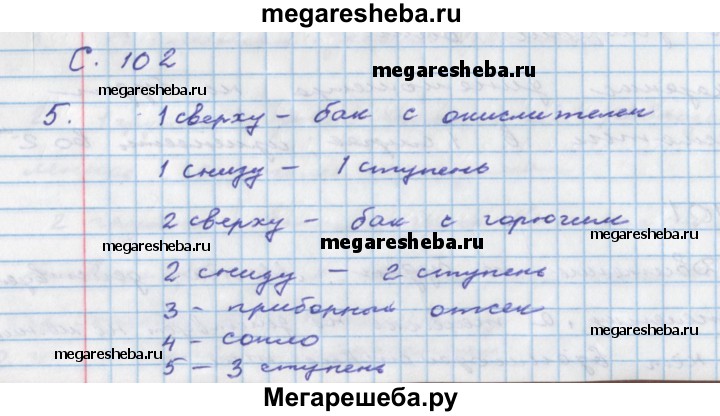 megaresheba.ru
С. 102
megaresheba.ru
megaresheba.ru
5. 1 сверху - бак с окислителем
megaresheba.ru
1 снизу - 1 ступень
2 сверху - бак с горючим
megaresheba.ru
megaresheba.ru
2 снизу - 2 ступень
3 - приборный отсек
megaresheba.ru
4 - сопло
megaresheba.ru
5 - 3 ступень
Мегарешеба.ру